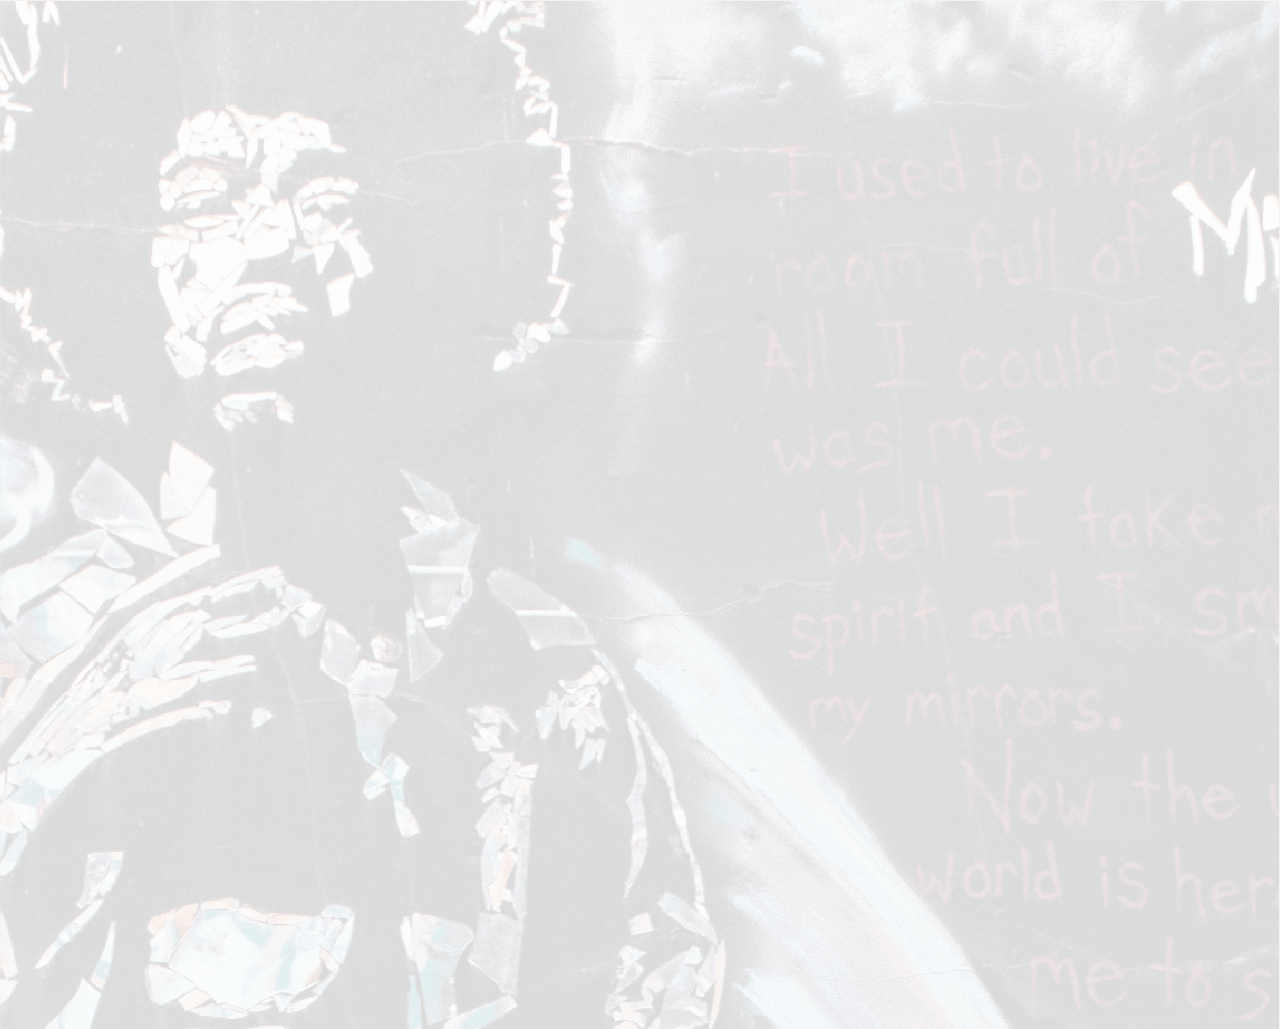 I used to live in
room full of Mi
All I could see
was me.
Well I take
spirit and I sm
my mirrors.
Now the
world is her
me to s